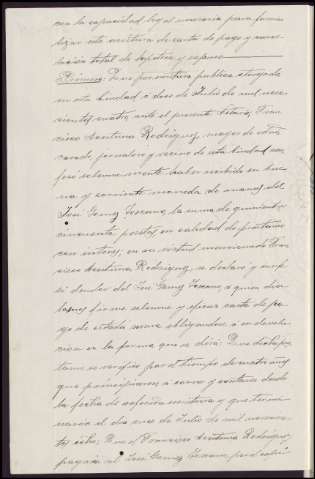 con la capacidad legal necesaria para forma
lizar esta escritura de carta de pago y can-
celacion total de hipoteca y expone
Primero: Que por escritura publica otorgada
en esta Ciudad a doce de Julio de mil nove-
cientos cuatro ante el presente Notario, Fran
cisco Ventura Rodriguez, mayor de edad
casado, jornalero y vecino de esta ciudad con
fesó solemnemente haber recibido en bue
na y corriente moneda de manos del
José Gomez Toscano, la suma de quinientas
cincuenta pesetas en calidad de prestamo
con interes; en su virtud mencionado Fran
cisco Ventura Rodriguez, se declaró
deudor del José Gomez Toscano, a quien dió
formo solemne y eficaz carta de pa
go de citada suma obligandose a devolver
la en la forma que se dirá: Que dicho pres
tamo se verificó por el tiempo de cuatro años
que principiaron a correr y contarse desde
la fecha de referida escritura y que termi
narán el dia once de Julio de mil novecien
tos ocho; Que el Francisco Ventura Rodriguez,
pagaria al José Gomez Toscano, por